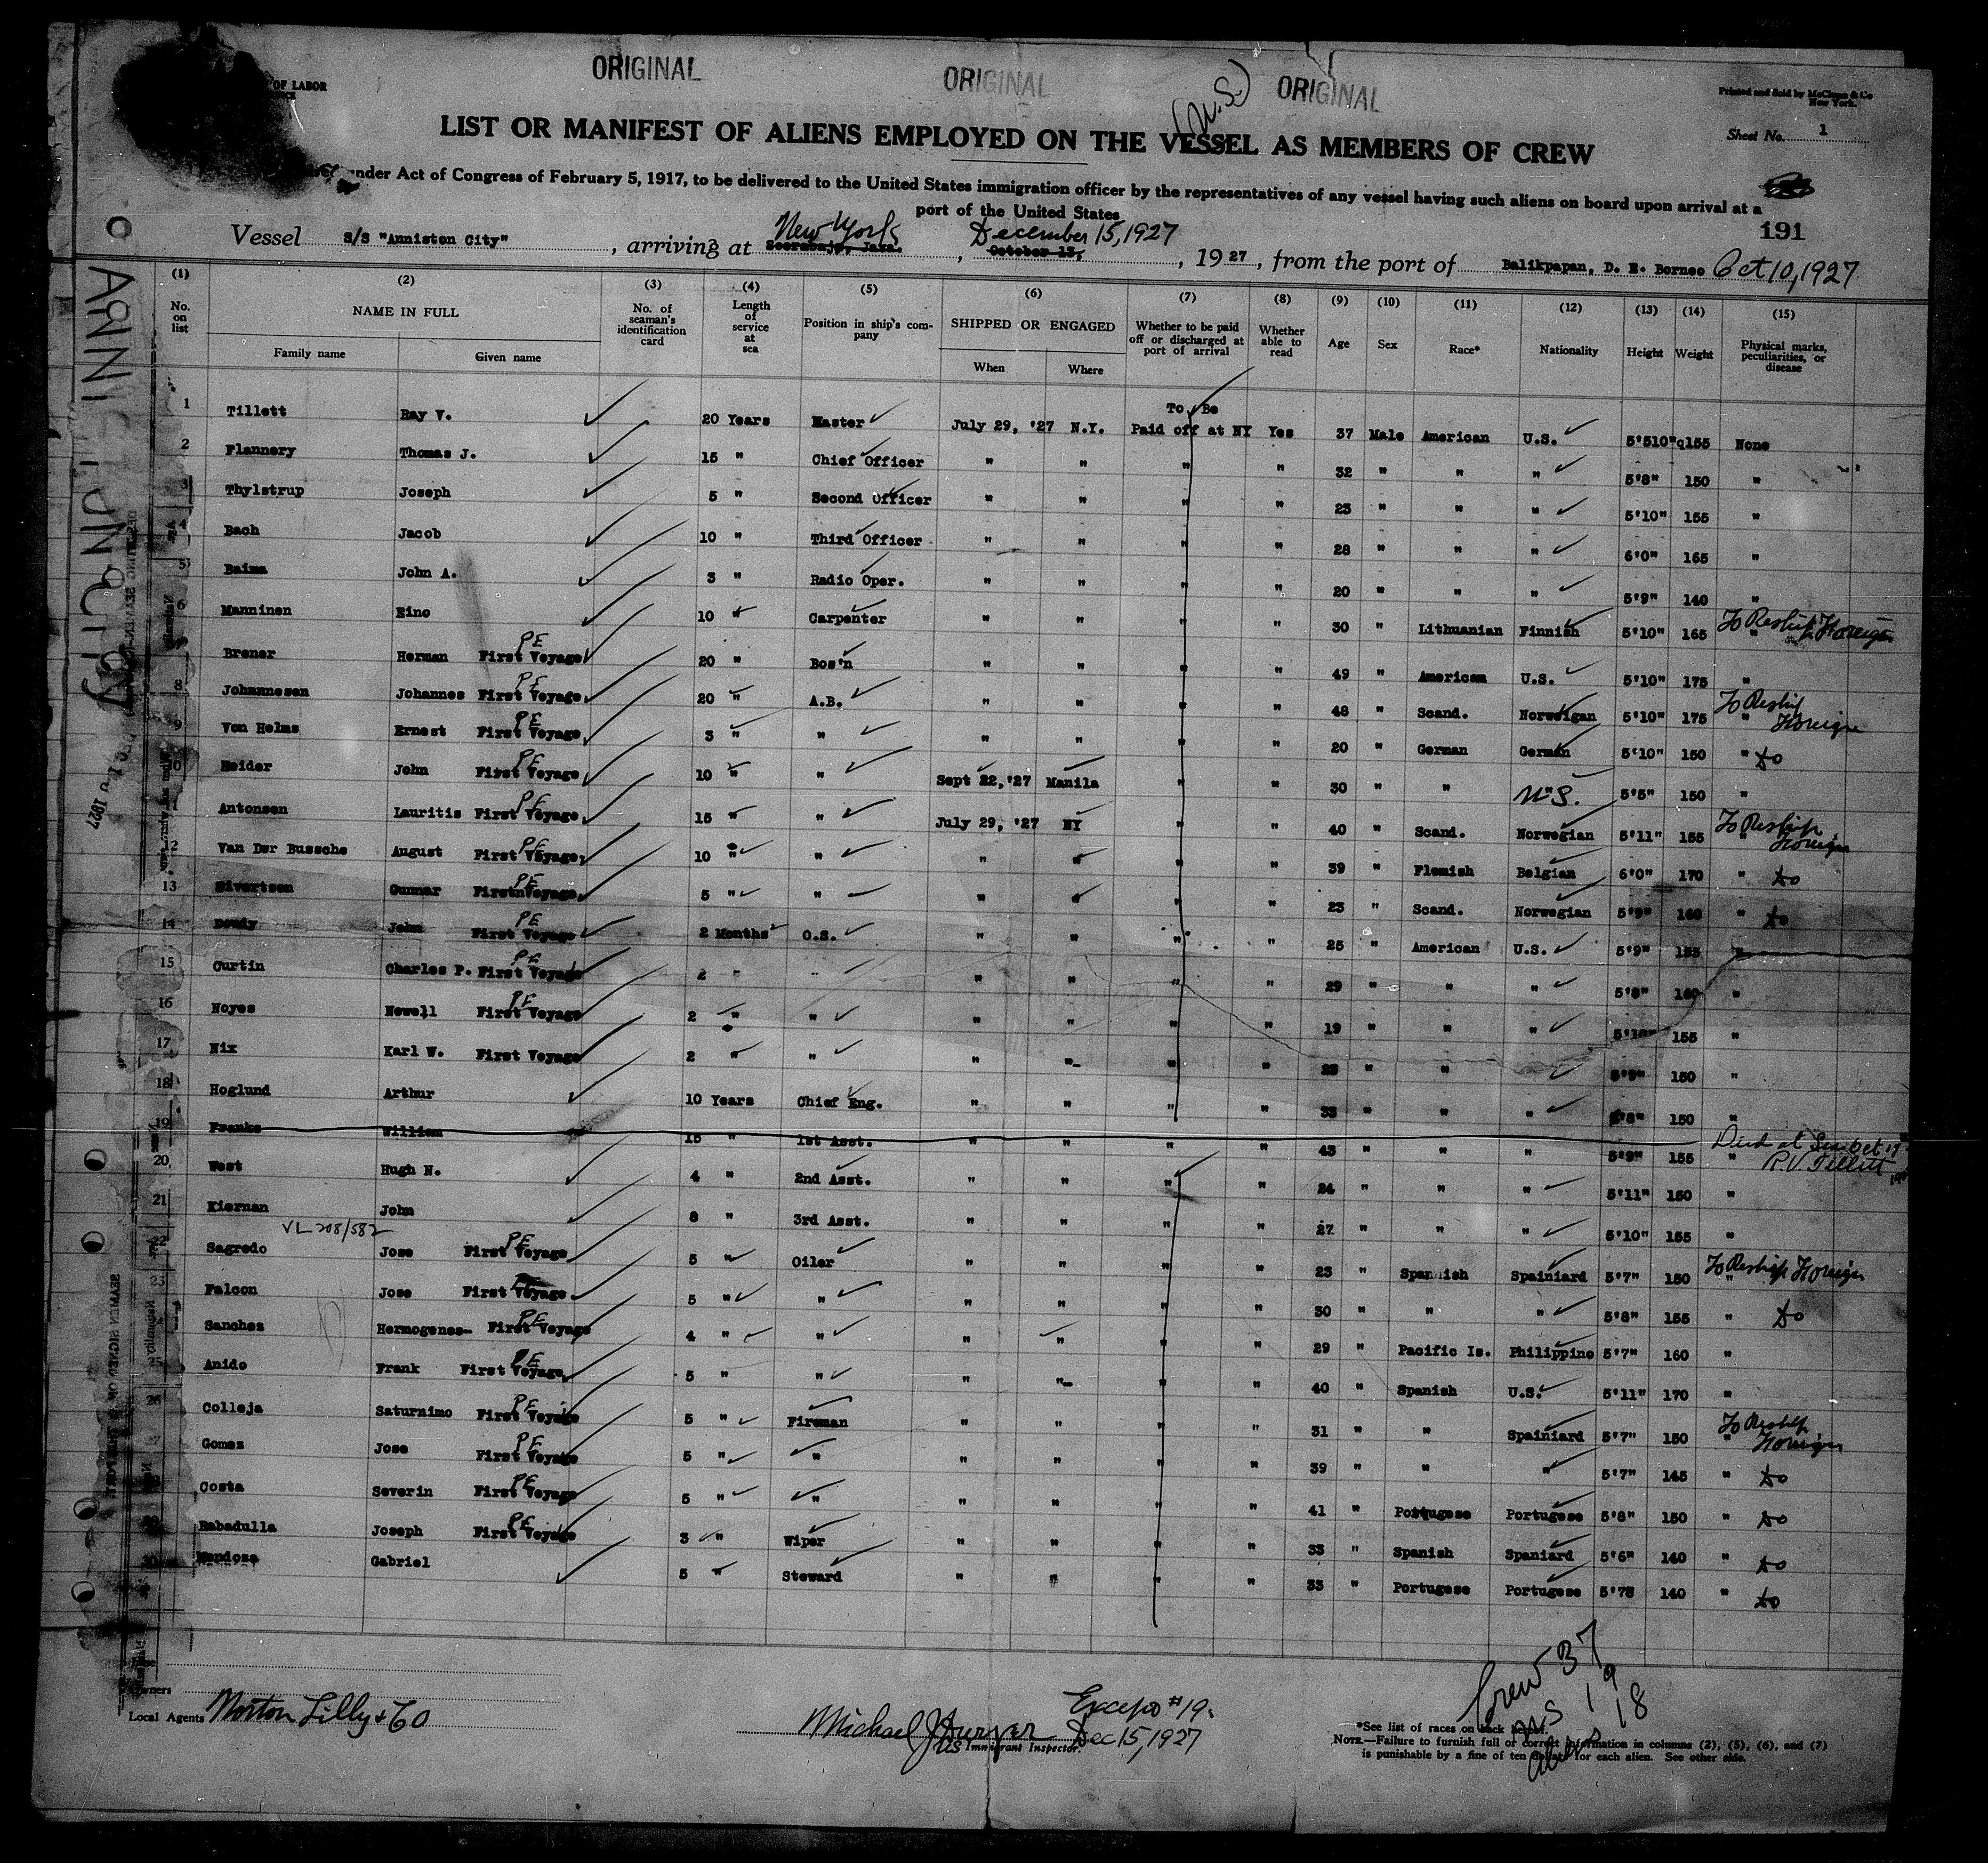 ORIGINAL ORIGINAL (U.S.) ORIGINAL
OF LABOR
Printed and Sold by McClunn & Co
New York.
LIST OR MANIFEST OF ALIENS EMPLOYED ON THE VESSEL AS MEMBERS OF CREW
Sheet No. 1
under Act of Congress of February 5, 1917, to be delivered to the United States immigration officer by the representatives of any vessel having such aliens on board upon arrival at a
port of the United States
191
Vessel S/S "Anniston City", arriving at New York Soerabaja, Java. , December 15, 1927 October 13, , 1927, from the port of Balikpapan, D. E. Borneo Oct 10, 1927
(1) (2) (3) (4) (5) (6) (7) (8) (9) (10) (11) (12) (13) (14) (15)
No. on list NAME IN FULL No. of seaman's identification card Length of service at sea Position in ship's company SHIPPED OR ENGAGED Whether to be paid off or discharged at port of arrival Whether able to read Age Sex Race* Nationality Height Weight Physical marks, peculiarities, or disease
Family name Given name When Where
1 Tillett Ray V. 20 Years Master July 29, '27 N.Y. To Be Paid off at NY Yes 37 Male American U.S. 5'510"q155 None
2 Flannery Thomas J. 15 " Chief Officer " " " " 32 " " " 5'8" 150 "
3 Thylstrup Joseph 5 " Second Officer " " " " 23 " " " 5'10" 155 "
4 Bach Jacob 10 " Third Officer " " " " 28 " " " 6'0" 165 "
5 Baima John A. 3 " Radio Oper. " " " " 20 " " " 5'9" 140 "
6 Manninen Eino 10 " Carpenter " " " " 30 " Lithuanian Finnish 5'10" 165 " To Reship Foreign
7 Brener Herman First Voyage PE 20 " Bos'n " " " " 49 " American U.S. 5'10" 175 "
8 Johannesen Johannes First Voyage PE 20 " A.B. " " " " 48 " Scand. Norweigan 5'10" 175 " To Reship Foreign
9 Von Helms Ernest First Voyage PE 3 " " " " " " 20 " German German 5'10" 150 " do
10 Heider John First Voyage PE 10 " " Sept 22,'27 Manila " " 30 " " U.S. 5'5" 150 "
11 Antonsen Lauritis First Voyage PE 15 " " July 29, '27 NY " " 40 " Scand. Norwegian 5'11" 155 " To Reship Foreign
12 Van Der Bussche August First Voyage PE 10 " " " " " " 39 " Flemish Belgian 6'0" 170 " do
13 Sivertsen Gunnar FirstnVoyage PE 5 " " " " " " 23 " Scand. Norwegian 5'9" 160 " do
14 Dowdy John First Voyage PE 2 Months O.S. " " " " 25 " American U.S. 5'9" 155 "
15 Curtin Charles P. First Voyage PE 2 " " " " " " 29 " " " 5'8" 160 "
16 Noyes Newell First Voyage PE 2 " " " " " " 19 " " " 5'10" 155 "
17 Nix Karl W. First Voyage 2 " " " " " 23 " " " 5'9" 150 "
18 Hoglund Arthur 10 Years Chief Eng. " " " " 33 " " " 5'8" 150 "
19 Franks William 15 " 1st Asst. " " " " 43 " " " 5'9" 155 " Died at Sea Oct 17 R.V. Tillett
20 West Hugh N. 4 " 2nd Asst. " " " " 24 " " " 5'11" 150 "
21 Kiernan John 8 " 3rd Asst. " " " " 27 " " " 5'10" 155 "
VL 208/582
22 Sagredo Jose First Voyage PE 5 " Oiler " " " " 23 " Spanish Spainiard 5'7" 150 " To Reship Foreign
23 Falcon Jose First Voyage 5 " " " " " " 30 " " " 5'8" 155 " do
24 Sanchez Hermogenes- First Voyage PE 4 " " " " " 29 " Pacific Is. Philippine 5'7" 160 "
25 Anido Frank First Voyage PE 5 " " " " " " 40 " Spanish U.S. 5'11" 170 "
26 Colleja Saturnimo First Voyage PE 5 " Fireman " " " " 31 " " Spainiard 5'7" 150 " To Reship Foreign
Gomez Jose First Voyage PE 5 " " " " " " 39 " " " 5'7" 145 " do
Costa Severin First Voyage PE 5 " " " " " " 41 " Portugese Portugese 5'8" 150 " do
Rabadulla Joseph First Voyage PE 3 " Wiper " " " " 33 " Spanish Spaniard 5'6" 140 " do
30 Mendoza Gabriel 5 " Steward " " " " 33 " Portugese Portugese 5'78 140 " do
Crew 37
US 19
Aliens 18
Owners
Local Agents Norton Lilly & Co
Except #19.
Michael J Dec 15, 1927
US Immigrant Inspector.
*See list of races on back hereof.
NOTE.—Failure to furnish full or correct information in columns (2), (5), (6), and (7)
is punishable by a fine of ten dollars for each alien. See other side.